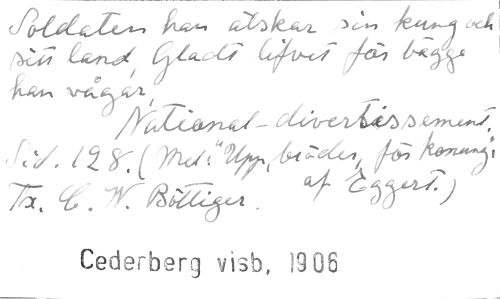 Soldaten han älskar sin kung och
sitt land, Gladt lifvet för bägge
han vågar,
National-divertissement.
Sid. 128. (Mel: "Upp, bröder, för konung"
af Eggert.)
Tx. C. W. Böttiger.
Cederberg visb, 1906